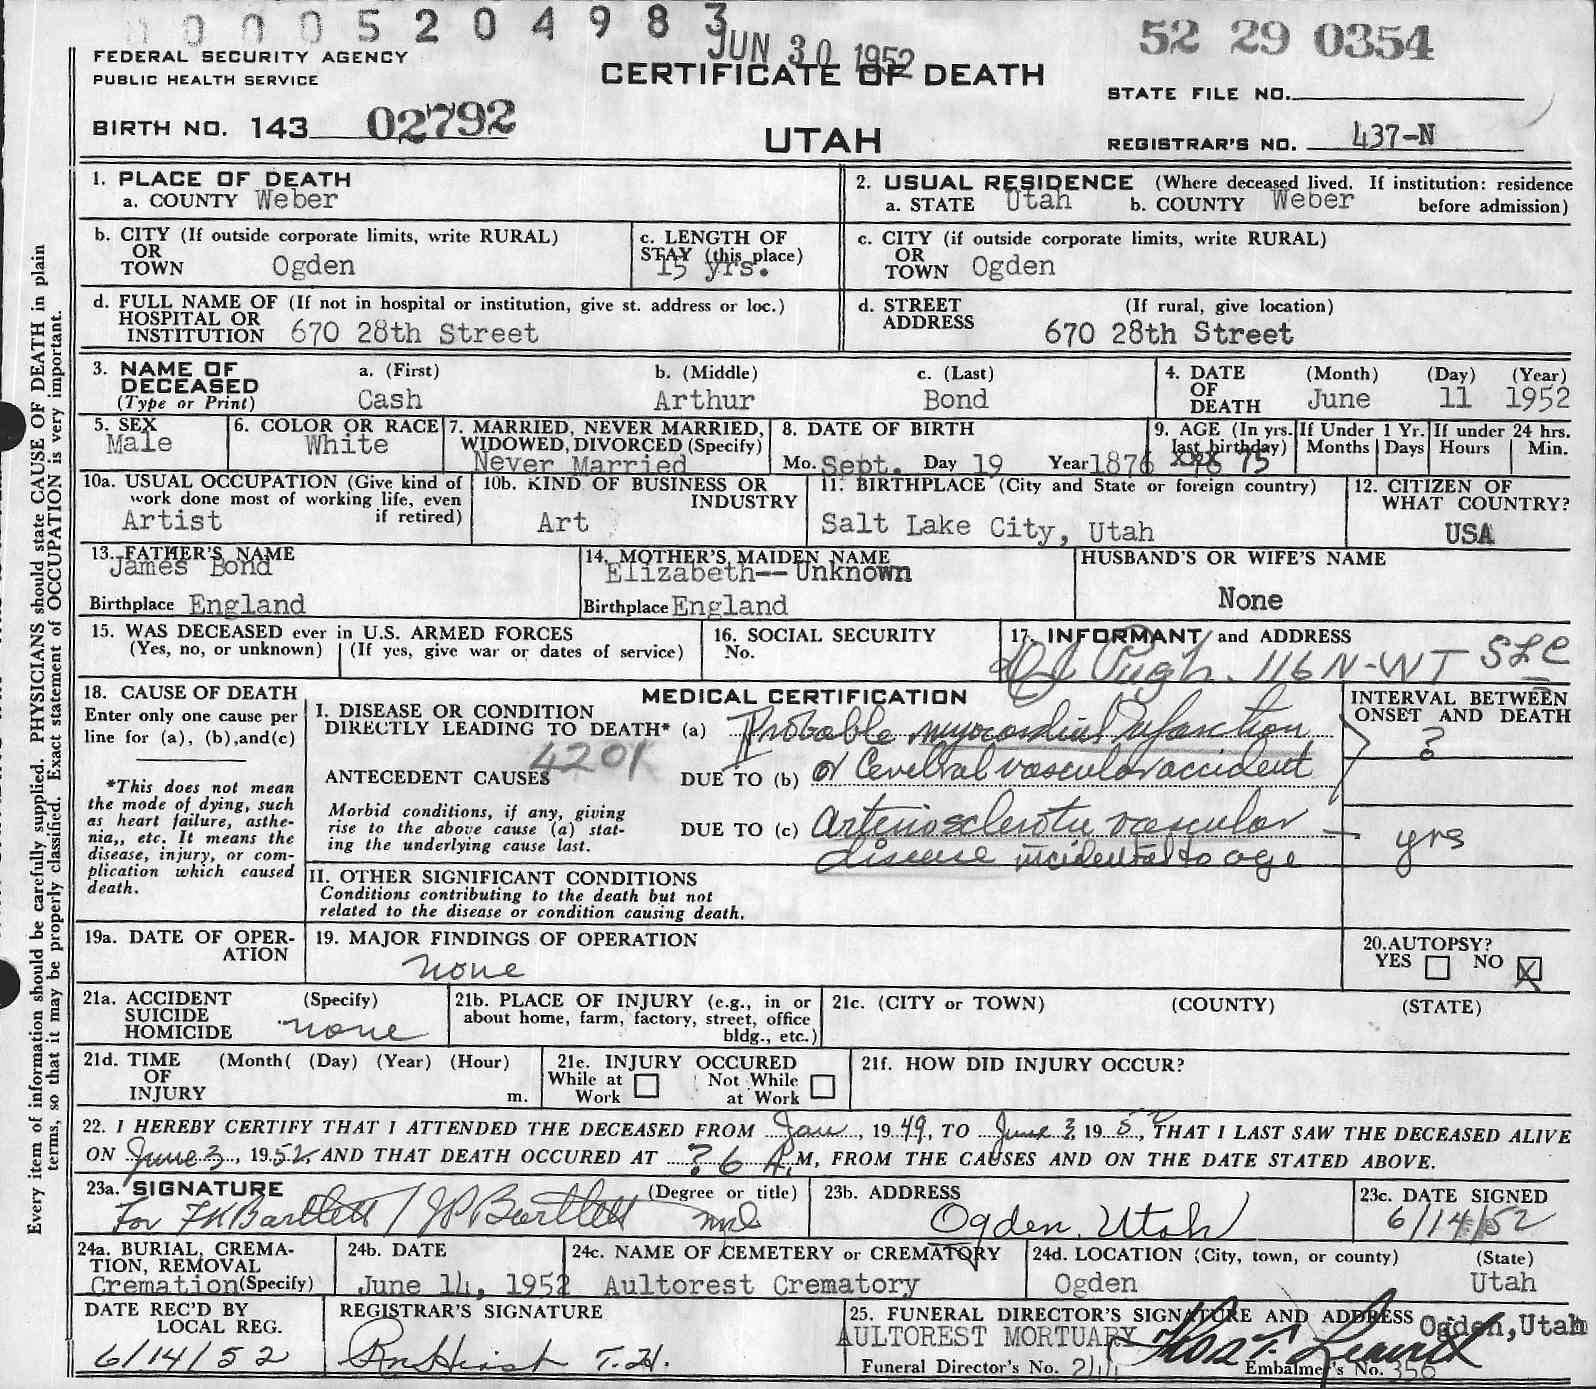 0000520498 3
JUN 30 1952
52 29 0354
FEDERAL SECURITY AGENCY
PUBLIC HEALTH SERVICE
CERTIFICATE OF DEATH
STATE FILE NO.
BIRTH NO. 143 02792
UTAH
REGISTRAR'S NO. 437-N
1. PLACE OF DEATH
a. COUNTY Weber
2. USUAL RESIDENCE (Where deceased lived. If institution: residence before admission)
a. STATE Utah b. COUNTY Weber
b. CITY (If outside corporate limits, write RURAL)
OR
TOWN Ogden
c. LENGTH OF
STAY (this place)
15 yrs.
c. CITY (if outside corporate limits, write RURAL)
OR
TOWN Ogden
d. FULL NAME OF (If not in hospital or institution, give st. address or loc.)
HOSPITAL OR
INSTITUTION 670 28th Street
d. STREET (If rural, give location)
ADDRESS 670 28th Street
3. NAME OF DECEASED
(Type or Print)
a. (First) b. (Middle) c. (Last)
Cash Arthur Bond
4. DATE OF DEATH
(Month) (Day) (Year)
June 11 1952
5. SEX
Male
6. COLOR OR RACE
White
7. MARRIED, NEVER MARRIED,
WIDOWED, DIVORCED (Specify)
Never Married
8. DATE OF BIRTH
Mo. Sept. Day 19 Year 1876
9. AGE (In yrs.
last birthday)
75
If Under 1 Yr.
Months Days
If under 24 hrs.
Hours Min.
10a. USUAL OCCUPATION (Give kind of
work done most of working life, even
if retired)
Artist
10b. KIND OF BUSINESS OR
INDUSTRY
Art
11. BIRTHPLACE (City and State or foreign country)
Salt Lake City, Utah
12. CITIZEN OF
WHAT COUNTRY?
USA
13. FATHER'S NAME
James Bond
Birthplace England
14. MOTHER'S MAIDEN NAME
Elizabeth--Unknown
Birthplace England
HUSBAND'S OR WIFE'S NAME
None
15. WAS DECEASED ever in U.S. ARMED FORCES
(Yes, no, or unknown) (If yes, give war or dates of service)
16. SOCIAL SECURITY
No.
17. INFORMANT and ADDRESS
Pugh. 116 N-WT SLC
18. CAUSE OF DEATH
Enter only one cause per
line for (a), (b),and(c)
*This does not mean
the mode of dying, such
as heart failure, asthe-
nia,, etc. It means the
disease, injury, or com-
plication which caused
death.
MEDICAL CERTIFICATION
INTERVAL BETWEEN
ONSET AND DEATH
I. DISEASE OR CONDITION
DIRECTLY LEADING TO DEATH* (a) Probable myocardial infarction
?
4201
ANTECEDENT CAUSES
DUE TO (b) or Cerebral vascular accident
Morbid conditions, if any, giving
rise to the above cause (a) stat-
ing the underlying cause last.
DUE TO (c) Arteriosclerotic vascular
disease incidental to age
yrs
II. OTHER SIGNIFICANT CONDITIONS
Conditions contributing to the death but not
related to the disease or condition causing death.
19a. DATE OF OPER-
ATION
19. MAJOR FINDINGS OF OPERATION
none
20. AUTOPSY?
YES NO X
21a. ACCIDENT (Specify)
SUICIDE
HOMICIDE none
21b. PLACE OF INJURY (e.g., in or
about home, farm, factory, street, office
bldg., etc.)
21c. (CITY or TOWN) (COUNTY) (STATE)
21d. TIME (Month( (Day) (Year) (Hour)
OF
INJURY m.
21e. INJURY OCCURED
While at Work
Not While at Work
21f. HOW DID INJURY OCCUR?
22. I HEREBY CERTIFY THAT I ATTENDED THE DECEASED FROM Jan, 1949, TO June 3, 1952, THAT I LAST SAW THE DECEASED ALIVE
ON June 3, 1952, AND THAT DEATH OCCURED AT ? 6 A.M, FROM THE CAUSES AND ON THE DATE STATED ABOVE.
23a. SIGNATURE (Degree or title)
For FK Bartlett / JP Bartlett MD
23b. ADDRESS
Ogden, Utah
23c. DATE SIGNED
6/14/52
24a. BURIAL, CREMA-
TION, REMOVAL
Cremation (Specify)
24b. DATE
June 14, 1952
24c. NAME OF CEMETERY or CREMATORY
Aultorest Crematory
24d. LOCATION (City, town, or county) (State)
Ogden Utah
DATE REC'D BY
LOCAL REG.
6/14/52
REGISTRAR'S SIGNATURE
T.H.
25. FUNERAL DIRECTOR'S SIGNATURE AND ADDRESS Ogden,Utah
AULTOREST MORTUARY
Funeral Director's No. 244
Embalmer's No. 356
Every item of information should be carefully supplied. PHYSICIANS should state CAUSE OF DEATH in plain
terms, so that it may be properly classified. Exact statement of OCCUPATION is very important.